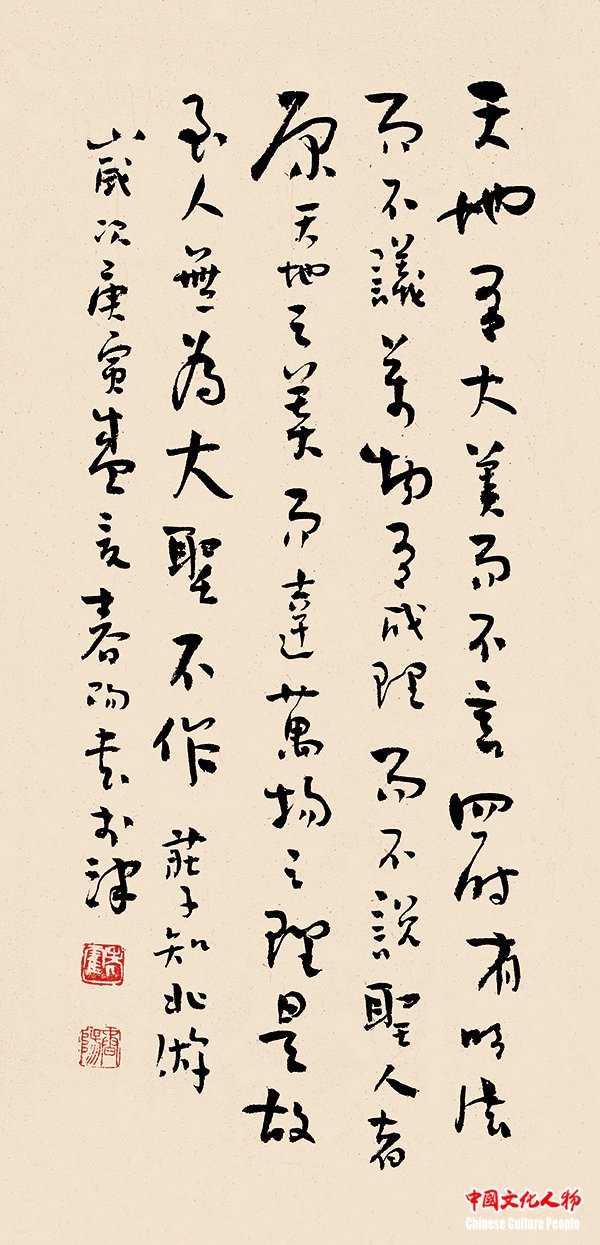 天地有大美而不言四时有明法
而不議萬物有成理而不說聖人者
原天地之美而達萬物之理是故
至人無為大聖不作 莊子知北游
歲次庚寅盛夏春陽书於津
春陽
中國文化人物
Chinese Culture People